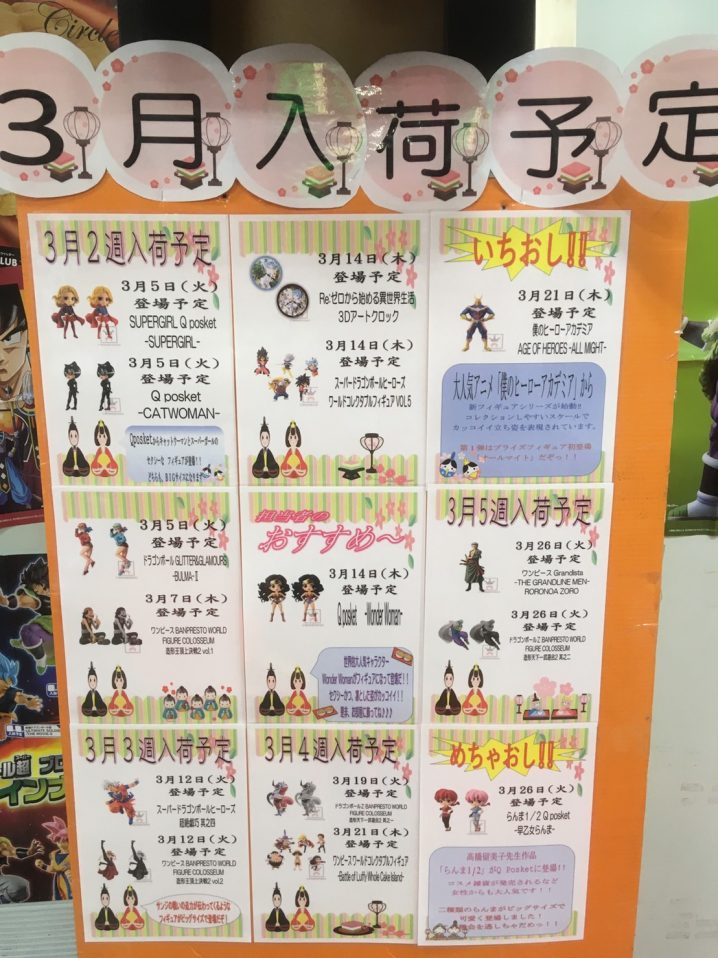 3月入荷予定
3月2週入荷予定
3月5日(火)
登場予定
SUPERGIRL Q posket
-SUPERGIRL-
3月5日(火)
登場予定
Q posket
-CATWOMAN-
Qposketからキャットウーマンとスーパーガールの
セクシーな フィギュアが登場!!
どちらも、BIGサイズになります
3月14日(木)
登場予定
Re:ゼロから始める異世界生活
3Dアートクロック
3月14日(木)
登場予定
スーパードラゴンボールヒーローズ
ワールドコレクタブルフィギュア VOL.5
いちおし!!
3月21日(木)
登場予定
僕のヒーローアカデミア
AGE OF HEROES -ALL MIGHT-
大人気アニメ「僕のヒーローアカデミア」から
新フィギュアシリーズが始動!!
コレクションしやすいスケールで
カッコイイ立ち姿を表現されています。
第1弾はプライズフィギュア初登場
「オールマイト」だぞっ!!
3月5日(火)
登場予定
ドラゴンボール GLITTER&GLAMOURS
-BULMA-Ⅱ
3月7日(木)
登場予定
ワンピース BANPRESTO WORLD
FIGURE COLOSSEUM
造形王頂上決戦2 vol.1
担当者の
おすすめ～
3月14日(木)
登場予定
Q posket -Wonder Woman-
世界的大人気キャラクター
Wonder Womanがフィギュアになって登場だ!!
セクシーかつ、凛とした姿がカッコイイ!!
3月5週入荷予定
3月26日(火)
登場予定
ワンピース Grandista
-THE GRANDLINE MEN-
RORONOA ZORO
3月26日(火)
登場予定
ドラゴンボールZ BANPRESTO WORLD
FIGURE COLOSSEUM
造形天下一武道会2 其之二
3月3週入荷予定
3月12日(火)
登場予定
スーパードラゴンボールヒーローズ
超絶戯巧 其之四
3月12日(火)
登場予定
ワンピース BANPRESTO WORLD
FIGURE COLOSSEUM
造形王頂上決戦2 vol.2
サンジの戦いの迫力が伝わってくるような
フィギュアがビッグサイズで登場だぞ!
3月4週入荷予定
3月19日(火)
登場予定
ドラゴンボールZ BANPRESTO WORLD
FIGURE COLOSSEUM
造形天下一武道会2 其之一
3月21日(木)
登場予定
ワンピース ワールドコレクタブルフィギュア
-Battle of Luffy Whole Cake Island-
めちゃおし!!
3月26日(火)
登場予定
らんま1/2 Q posket
-早乙女らんま-
高橋留美子先生作品
「らんま1/2」がQ Posketに登場!!
コスメ雑貨が発売されるなど
女性からも大人気です!!
二種類のらんまがビッグサイズで
可愛く登場しました!